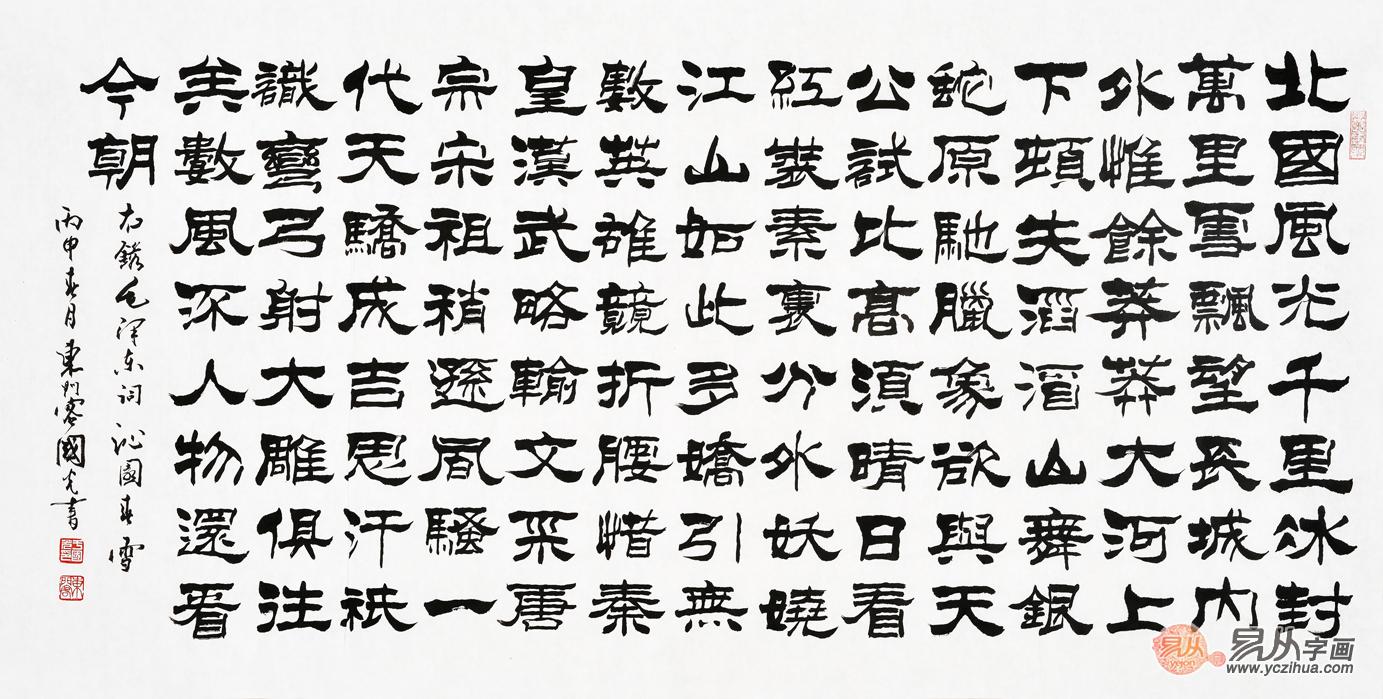 北國風光千里冰封
萬里雪飄望長城內
外惟餘莽莽大河上
下頓失滔滔山舞銀
蛇原馳臘象欲與天
公試比高須晴日看
紅裝素裹分外妖嬈
江山如此多嬌引無
數英雄競折腰惜秦
皇漢武略輸文采唐
宗宋祖稍遜風騷一
代天驕成吉思汗祇
識彎弓射大雕俱往
矣數風流人物還看
今朝
右錄毛澤東詞沁園春雪
丙申春月東門客國光書
易从字画
www.yczihua.com